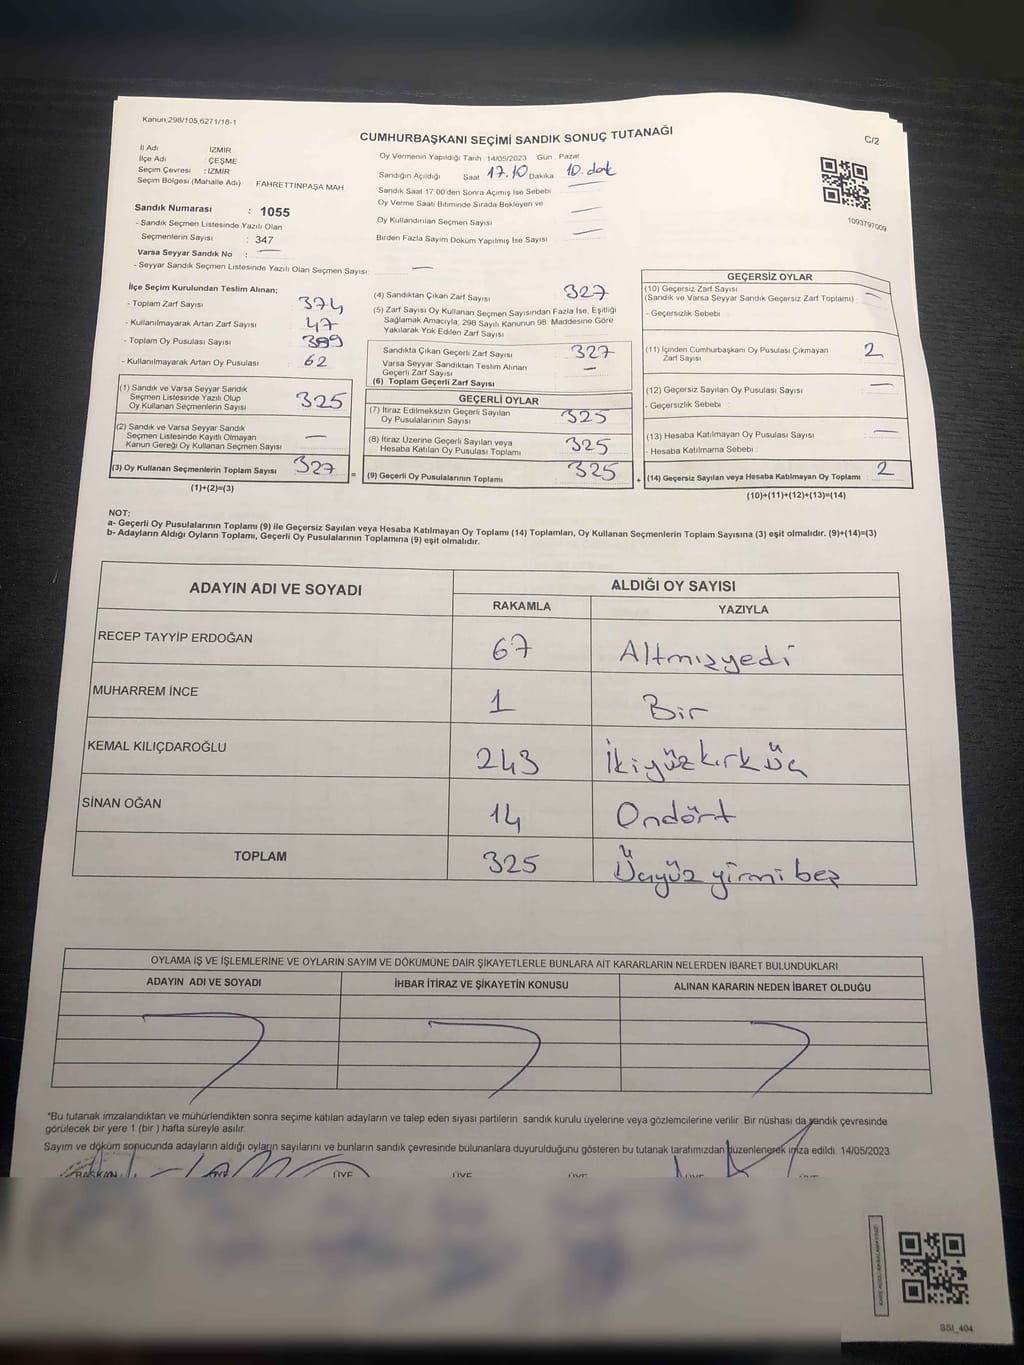 Kanun,298/105,6271/18-1
CUMHURBAŞKANI SEÇİMİ SANDIK SONUÇ TUTANAĞI
C/2
İl Adı İZMİR
İlçe Adı : ÇEŞME
Seçim Çevresi : İZMİR
Seçim Bölgesi (Mahalle Adı) FAHRETTİNPAŞA MAH
Oy Vermenin Yapıldığı Tarih :14/05/2023 Gün : Pazar
Sandığın Açıldığı Saat 17.10 Dakika 10.dak
Sandık Saat 17:00'den Sonra Açımış İse Sebebi
Oy Verme Saati Bitiminde Sırada Bekleyen ve
Oy Kullandırılan Seçmen Sayısı
Birden Fazla Sayım Döküm Yapılmış İse Sayısı
1093797009
Sandık Numarası : 1055
- Sandık Seçmen Listesinde Yazılı Olan
Seçmenlerin Sayısı : 347
Varsa Seyyar Sandık No : —
- Seyyar Sandık Seçmen Listesinde Yazılı Olan Seçmen Sayısı : —
İlçe Seçim Kurulundan Teslim Alınan;
- Toplam Zarf Sayısı 374
- Kullanılmayarak Artan Zarf Sayısı 47
- Toplam Oy Pusulası Sayısı
- Kullanılmayarak Artan Oy Pusulası 62
(1) Sandık ve Varsa Seyyar Sandık
Seçmen Listesinde Yazılı Olup
Oy Kullanan Seçmenlerin Sayısı 325
(2) Sandık ve Varsa Seyyar Sandık
Seçmen Listesinde Kayıtlı Olmayan
Kanun Gereği Oy Kullanan Seçmen Sayısı —
(3) Oy Kullanan Seçmenlerin Toplam Sayısı 327
(1)+(2)=(3)
(4) Sandıktan Çıkan Zarf Sayısı 327
(5) Zarf Sayısı Oy Kullanan Seçmen Sayısından Fazla İse, Eşitliği
Sağlamak Amacıyla; 298 Sayılı Kanunun 98. Maddesine Göre
Yakılarak Yok Edilen Zarf Sayısı
Sandıkta Çıkan Geçerli Zarf Sayısı 327
Varsa Seyyar Sandıktan Teslim Alınan
Geçerli Zarf Sayısı —
(6) Toplam Geçerli Zarf Sayısı
GEÇERLİ OYLAR
(7) İtiraz Edilmeksizin Geçerli Sayılan
Oy Pusulalarının Sayısı 325
(8) İtiraz Üzerine Geçerli Sayılan veya
Hesaba Katılan Oy Pusulası Toplamı 325
= (9) Geçerli Oy Pusulalarının Toplamı 325
GEÇERSİZ OYLAR
(10) Geçersiz Zarf Sayısı
(Sandık ve Varsa Seyyar Sandık Geçersiz Zarf Toplamı) : —
- Geçersizlik Sebebi
(11) İçinden Cumhurbaşkanı Oy Pusulası Çıkmayan
Zarf Sayısı 2
(12) Geçersiz Sayılan Oy Pusulası Sayısı —
- Geçersizlik Sebebi :
(13) Hesaba Katılmayan Oy Pusulası Sayısı —
- Hesaba Katılmama Sebebi
+ (14) Geçersiz Sayılan veya Hesaba Katılmayan Oy Toplamı : 2
(10)+(11)+(12)+(13)=(14)
NOT:
a- Geçerli Oy Pusulalarının Toplamı (9) ile Geçersiz Sayılan veya Hesaba Katılmayan Oy Toplamı (14) Toplamları, Oy Kullanan Seçmenlerin Toplam Sayısına (3) eşit olmalıdır. (9)+(14)=(3)
b- Adayların Aldığı Oyların Toplamı, Geçerli Oy Pusulalarının Toplamına (9) eşit olmalıdır.
ADAYIN ADI VE SOYADI ALDIĞI OY SAYISI
RAKAMLA YAZIYLA
RECEP TAYYİP ERDOĞAN 67 Altmışyedi
MUHARREM İNCE 1 Bir
KEMAL KILIÇDAROĞLU 243 İkiyüzkırküç
SİNAN OĞAN 14 Ondört
TOPLAM 325 Üçyüz yirmi beş
OYLAMA İŞ VE İŞLEMLERİNE VE OYLARIN SAYIM VE DÖKÜMÜNE DAİR ŞİKAYETLERLE BUNLARA AİT KARARLARIN NELERDEN İBARET BULUNDUKLARI
ADAYIN ADI VE SOYADI İHBAR İTİRAZ VE ŞİKAYETİN KONUSU ALINAN KARARIN NEDEN İBARET OLDUĞU
*Bu tutanak imzalandıktan ve mühürlendikten sonra seçime katılan adayların ve talep eden siyasi partilerin sandık kurulu üyelerine veya gözlemcilerine verilir. Bir nüshası da sandık çevresinde
görülecek bir yere 1 (bir ) hafta süreyle asılır.
Sayım ve döküm sonucunda adayların aldığı oyların sayılarını ve bunların sandık çevresinde bulunanlara duyurulduğunu gösteren bu tutanak tarafımızdan düzenlenerek imza edildi. 14/05/2023
BAŞKAN ÜYE ÜYE ÜYE ÜYE ÜYE
SSI_404